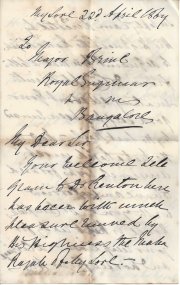 Mysore 22d April 1867
To
Major
Royal Engineers
Bangalore
My Dear Sir
Your welcome tele
gram to Dr. here
has been with much
pleasure by
His Highness the Maha
Rajah of Mysore —